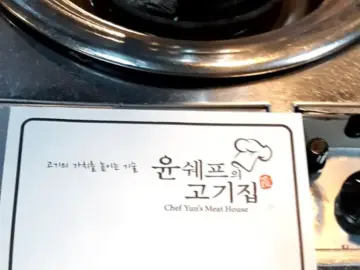 고기의 가치를 높이는 기술
윤쉐프의
고기집
Chef Yun's Meat House